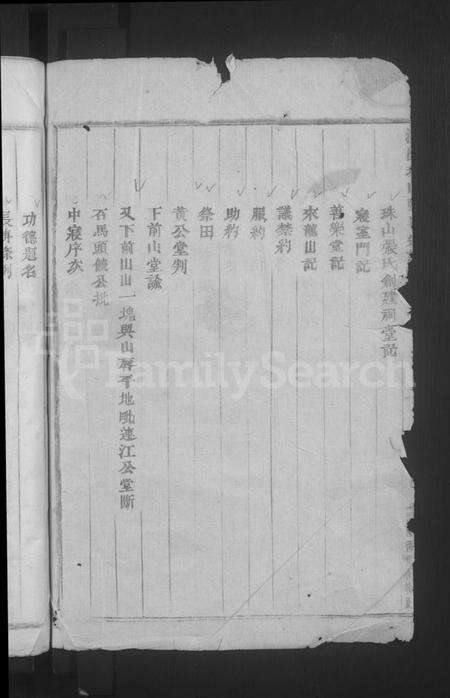 珠山張氏創建祠堂記
寢室門記
善樂堂記
來龍山記
議禁約
服約
助約
祭田
黃公堂判
下前山堂諭
又下前山山一塊與山房平地毗連江公堂斷
石馬頭饒公批
中寢序次
功德題名
FamilySearch